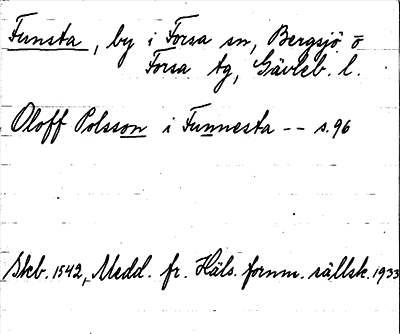 Funsta, by i Forsa sn, Bergsjö o
Forsa tg, Gävleb. l.
Oloff Polsson i Funnesta -- s. 96
Skb. 1542, Medd. fr. Häls. fornm. sällsk. 1933